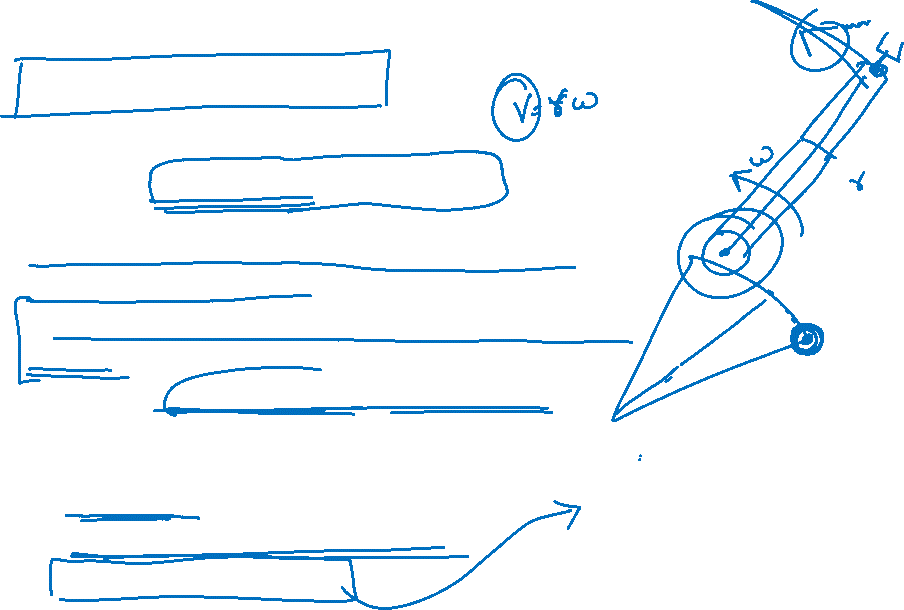 V = rω
ω
r